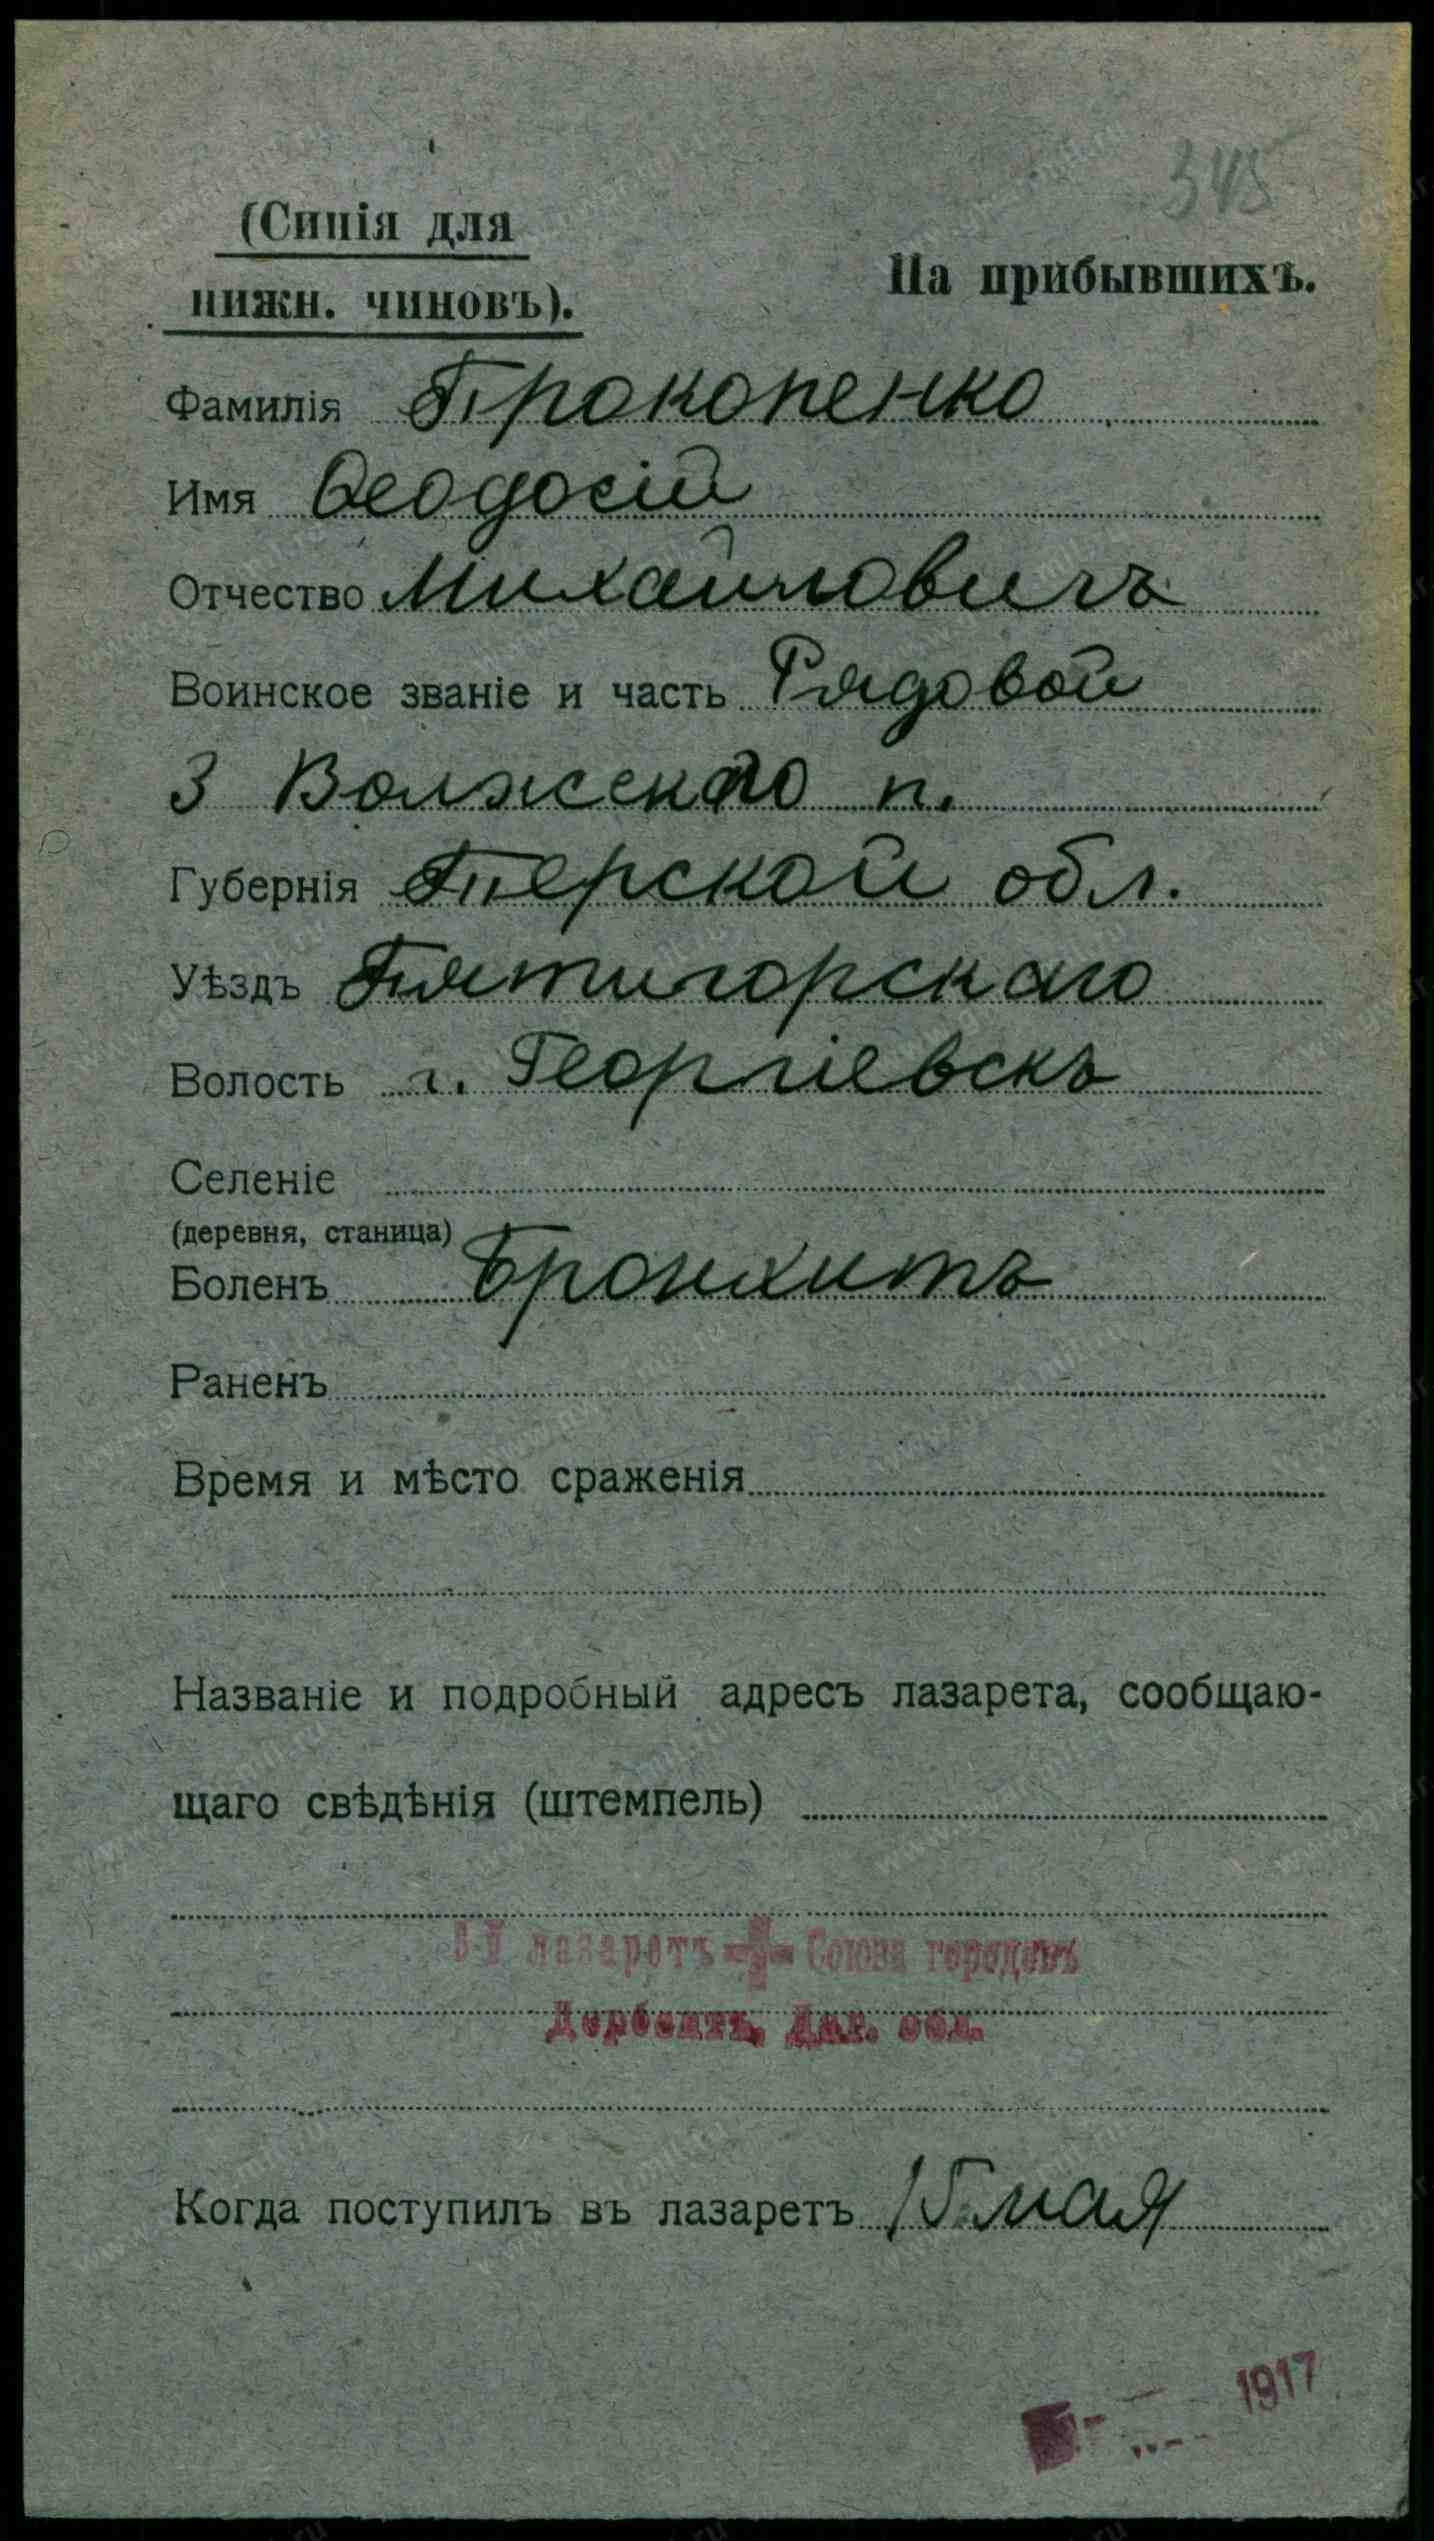 345
(Синія для
нижн. чиновъ).
На прибывшихъ.
Фамилія Прокопенко
Имя Ѳеодосій
Отчество Михайловичъ
Воинское званіе и часть Рядовой
3 Волжскаго п.
Губернія Терской обл.
Уѣздъ Пятигорскаго
Волость г. Георгіевскъ
Селеніе
(деревня, станица)
Боленъ Бронхитъ
Раненъ
Время и мѣсто сраженія
Названіе и подробный адресъ лазарета, сообщаю-
щаго свѣдѣнія (штемпель)
лазаретъ Союза городовъ
Дербентъ, Даг. обл.
Когда поступилъ въ лазаретъ 15 мая
1917